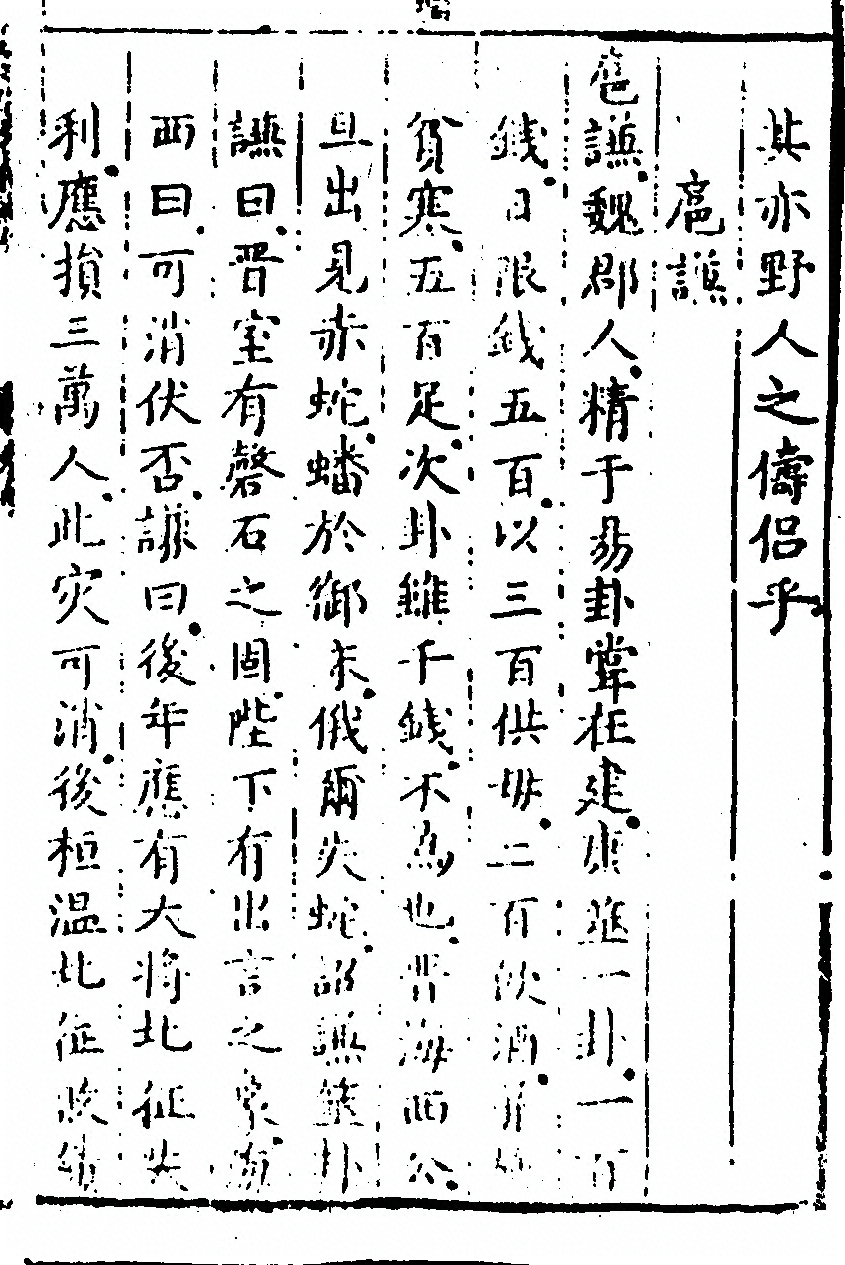 其亦野人之儔侶乎
扈謙
扈謙魏郡人精于易卦常在建康筮一卦一百
錢日限錢五百以三百供母二百飲酒并
貧寒五百足次卦雖千錢不為也晋海西公
旦出見赤蛇蟠於御床俄爾失蛇詔謙筮卦
謙曰晋室有磬石之固陛下有出言之象海
西曰可消伏否謙曰後年應有大將北征失
利應損三萬人此灾可消後桓温北征敗績